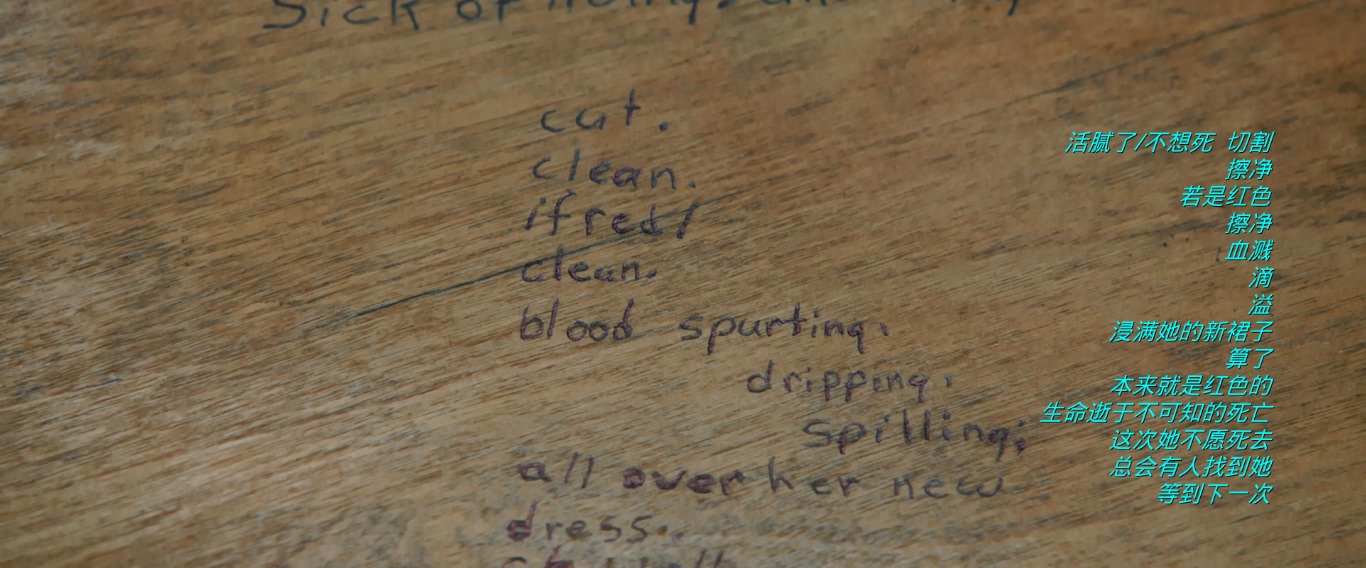 Sick of
cut.
clean.
if red/
clean.
blood spurting.
dripping.
spilling;
all over her new
dress.
活腻了/不想死 切割
擦净
若是红色
擦净
血溅
滴
溢
浸满她的新裙子
算了
本来就是红色的
生命逝于不可知的死亡
这次她不愿死去
总会有人找到她
等到下一次